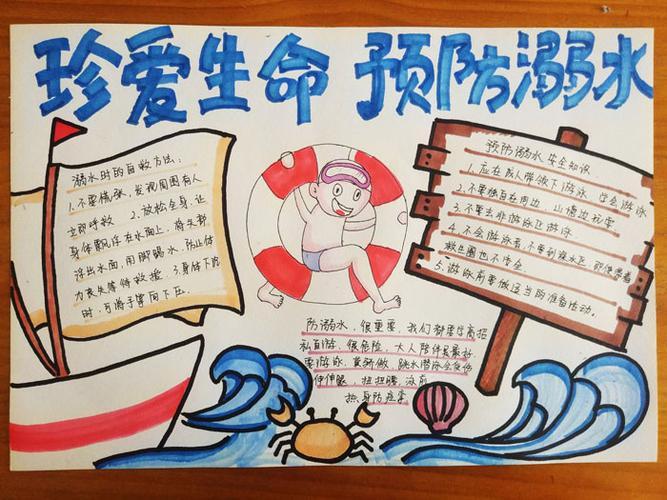 珍爱生命 预防溺水
溺水时的自救方法:
1.不要慌张,发现周围有人
立即呼救 2.放松全身,让
身体飘浮在水面上,将头部
浮出水面,用脚踢水,防止体
力丧失等待救援 3.身体下沉
时,可将手掌向下压。
预防溺水安全知识
1.应在成人带领下游泳 学会游泳
2.不要独自在河边 山塘边玩耍
3.不要去非游泳区游泳
4.不会游泳者,不要到深水区,即使带着
救生圈也不安全
5.游泳前要做适当的准备活动。
防溺水,很重要,我们都要学高招
私自游、很危险,大人陪伴是最好
要游泳,莫骄傲 跳水潜泳会
伸伸腿,扭扭腰,泳前
热身防痉挛